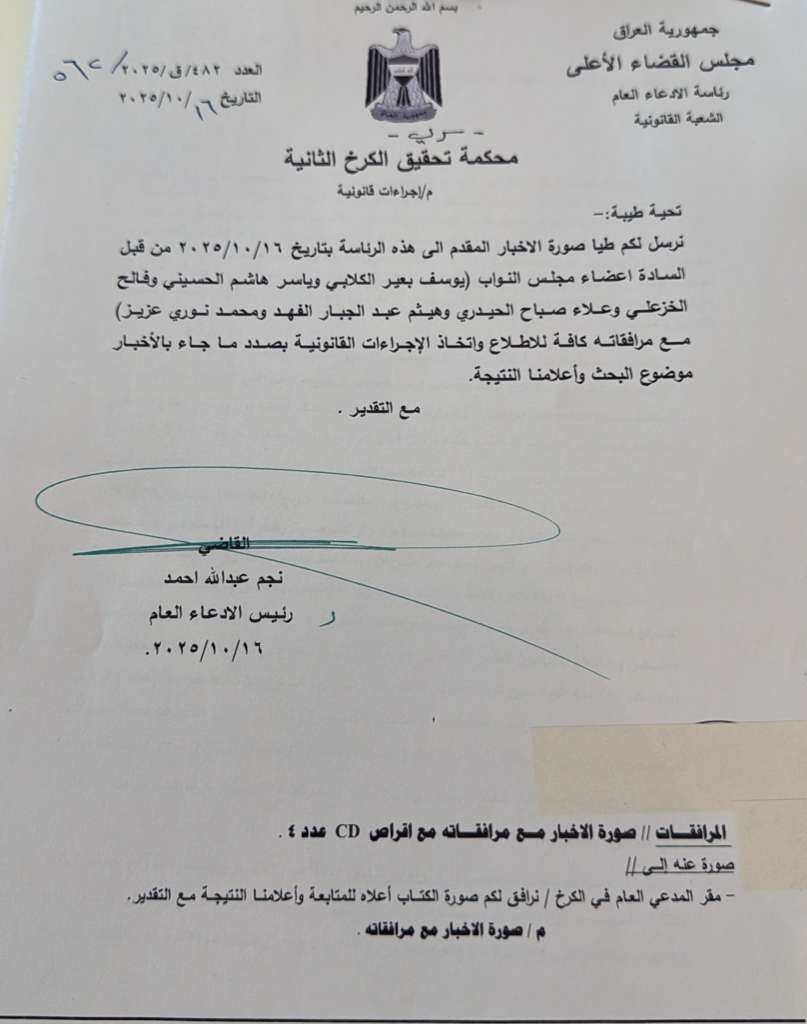 بسم الله الرحمن الرحيم
جمهورية العراق
مجلس القضاء الأعلى
رئاسة الادعاء العام
الشعبة القانونية
العدد ٤٨٢/ق/٢٠٢٥/
التاريخ ١٦/١٠/٢٠٢٥
- سري -
محكمة تحقيق الكرخ الثانية
م/إجراءات قانونية
تحية طيبة:-
نرسل لكم طيا صورة الاخبار المقدم الى هذه الرئاسة بتاريخ ٢٠٢٥/١٠/١٦ من قبل
السادة اعضاء مجلس النواب (يوسف بعير الكلابي وياسر هاشم الحسيني وفالح
الخزعلي وعلاء صباح الحيدري وهيثم عبد الجبار الفهد ومحمد نوري عزيز)
مع مرافقاته كافة للاطلاع واتخاذ الإجراءات القانونية بصدد ما جاء بالأخبار
موضوع البحث وأعلامنا النتيجة.
مع التقدير .
القاضي
نجم عبدالله احمد
رئيس الادعاء العام
٢٠٢٥/١٠/١٦.
المرافقات // صورة الاخبار مع مرافقاته مع اقراص CD عدد ٤ .
صورة عنه إلى //
- مقر المدعي العام في الكرخ / نرافق لكم صورة الكتاب أعلاه للمتابعة وأعلامنا النتيجة مع التقدير.
م / صورة الاخبار مع مرافقاته .